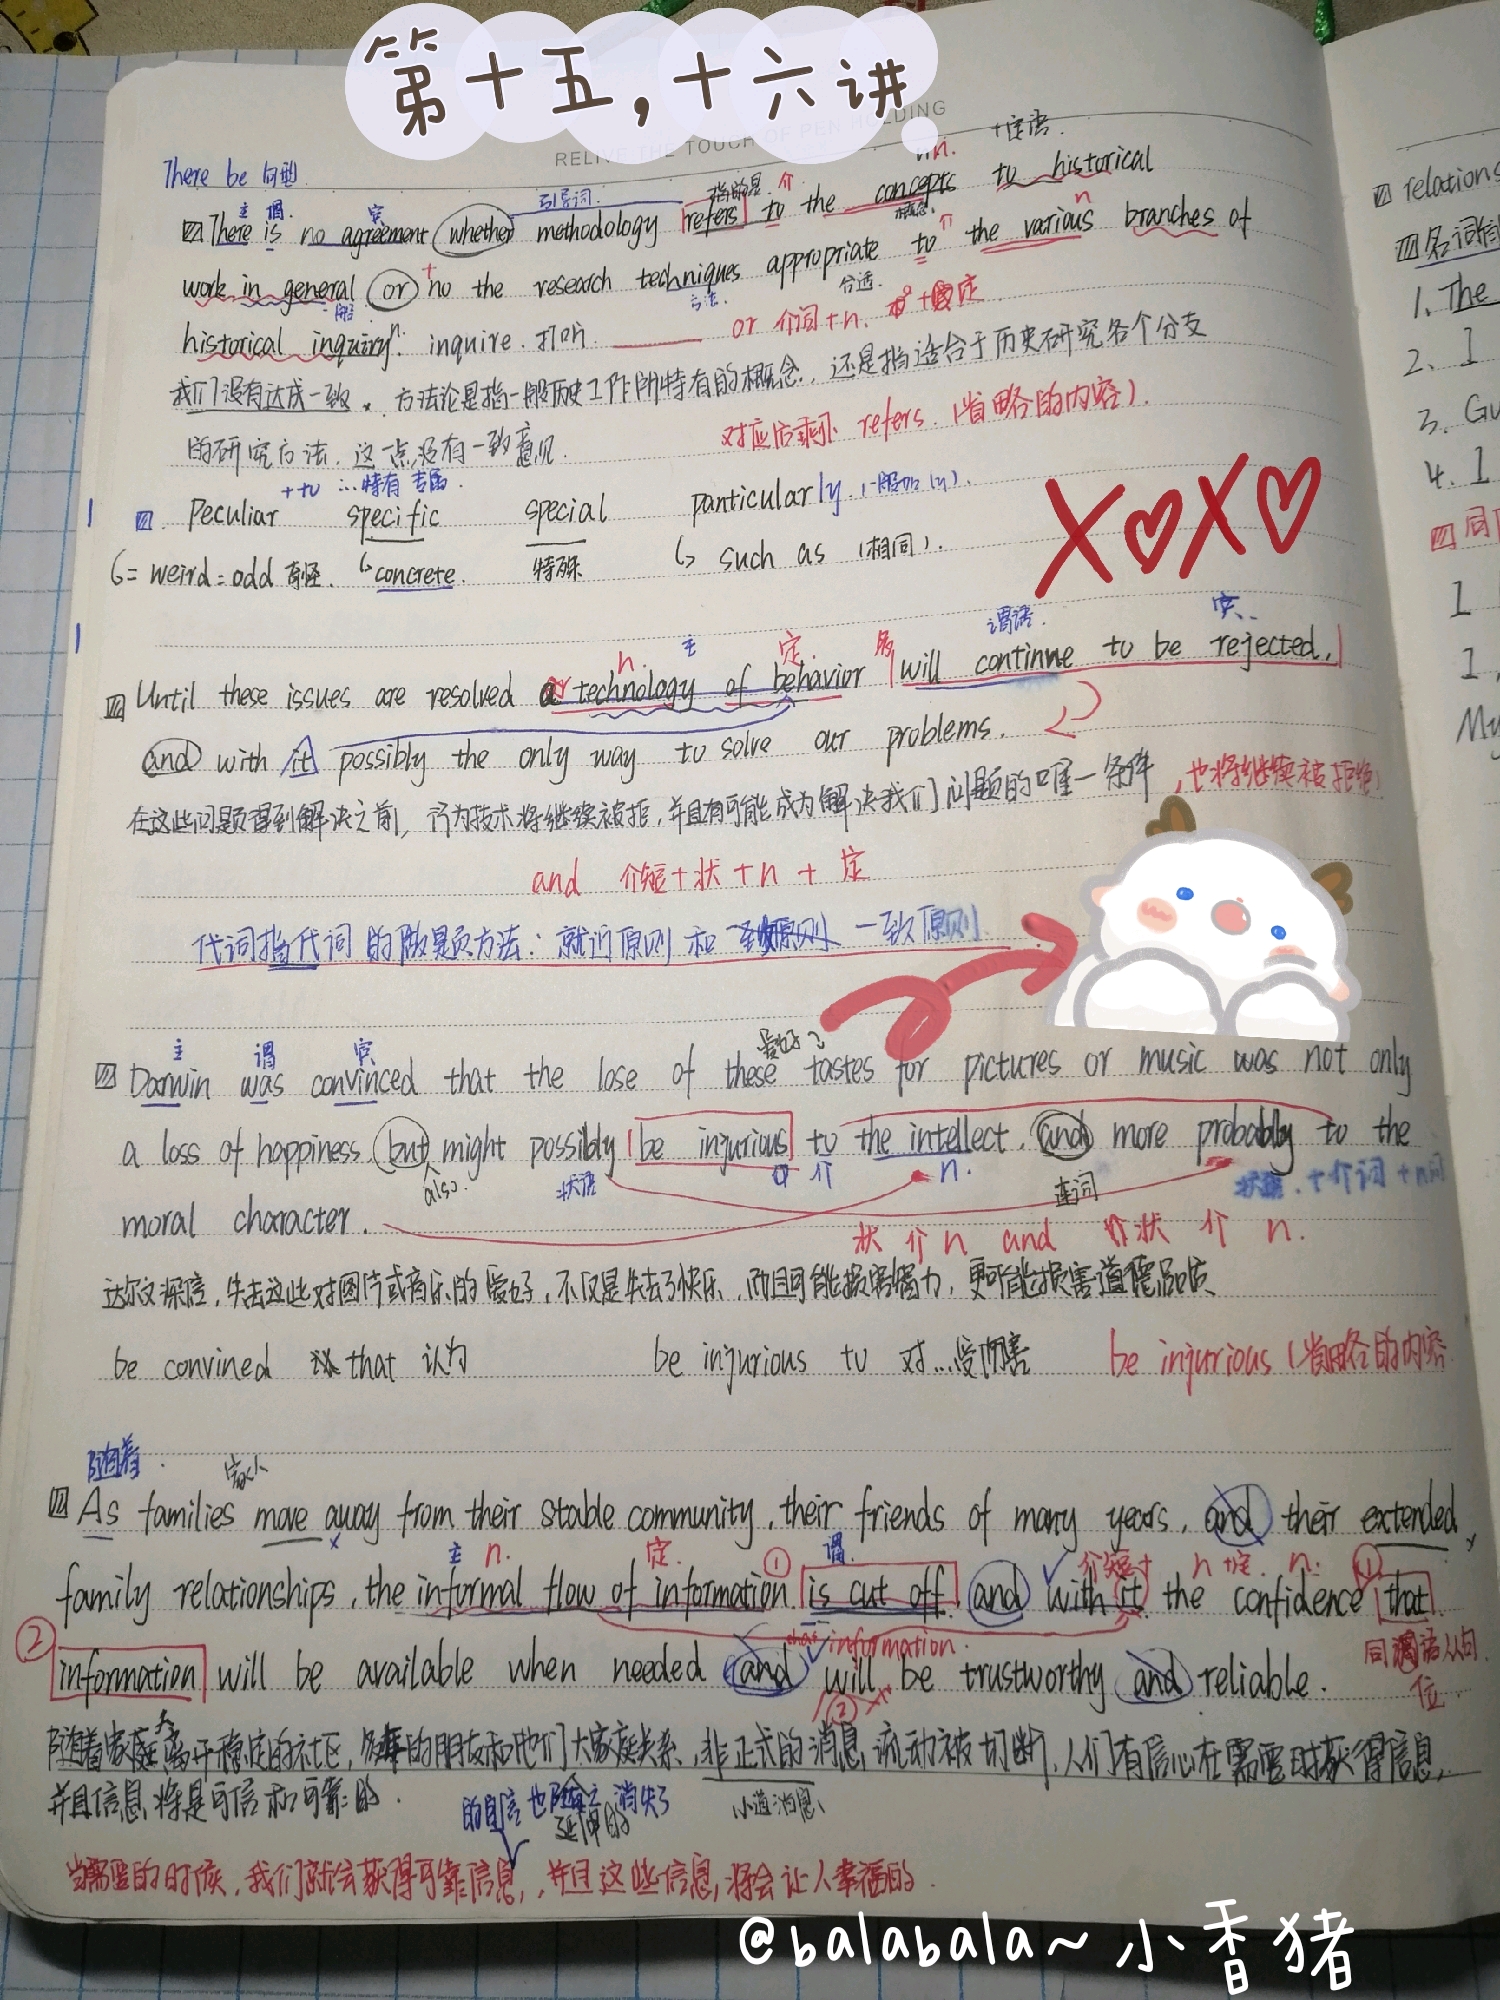 第十五，十六讲
RELIVE THE TOUCH OF PEN HOLDING
+定语
There be 句型
主 谓 宾 引导词 指的是 介 n.
There is no agreement whether methodology refers to the concepts to historical
概念 n
work in general or no the research techniques appropriate to the various branches of
方法 合适
historical inquiry. inquire. 打听 or 介词+n.
我们没有达成一致. 方法论是指一般历史工作所特有的概念, 还是指适合于历史研究各个分支
的研究方法. 这一点没有一致意见. 对应后 refers. (省略的内容).
+to ...特有 专属
Peculiar specific special particularly
= weird = odd 奇怪. concrete. 特殊 such as (相同).
n. 主 定. 谓语. 宾.
Until these issues are resolved a technology of behavior will continue to be rejected,
and with it possibly the only way to solve our problems.
在这些问题得到解决之前, 行为技术将继续被拒, 并且有可能成为解决我们问题的唯一条件, 也将继续被拒绝
and 介短+状+n+定
代词指代词的做题方法: 就近原则 和 一致原则
XOXO
主 谓 宾 爱好
Darwin was convinced that the lose of these tastes for pictures or music was not only
a loss of happiness but might possibly be injurious to the intellect, and more probably to the
also. 状语 介 n. 连词 +介词+n词
moral character.
状 介 n and 状 介 n.
达尔文深信, 失去这些对图片或音乐的爱好, 不仅是失去了快乐, 而且可能损害智力, 更可能损害道德品质
be convined that 认为 be injurious to 对...受伤害 be injurious (省略的内容
随着.
As families move away from their stable community, their friends of many years, and their extended
主 n. 定. ① 谓. 介短+ n +定. n. ①
family relationships, the informal flow of information is cut off and with it the confidence that
② information. 同谓语从句.
information will be available when needed and will be trustworthy and reliable.
② 位
随着家庭离开稳定的社区, 多年的朋友和他们大家庭关系, 非正式的消息流动被切断, 人们有信心在需要时获得信息,
并且信息将是可信和可靠的. 的自信也随之消失了 小道消息
延伸的
当需要的时候, 我们就会获得可靠信息, 并且这些信息, 将会让人幸福的.
@balabala~小香猪
relations
名词
1. The
2. I
3. Gu
4. I
同
1
1.
My